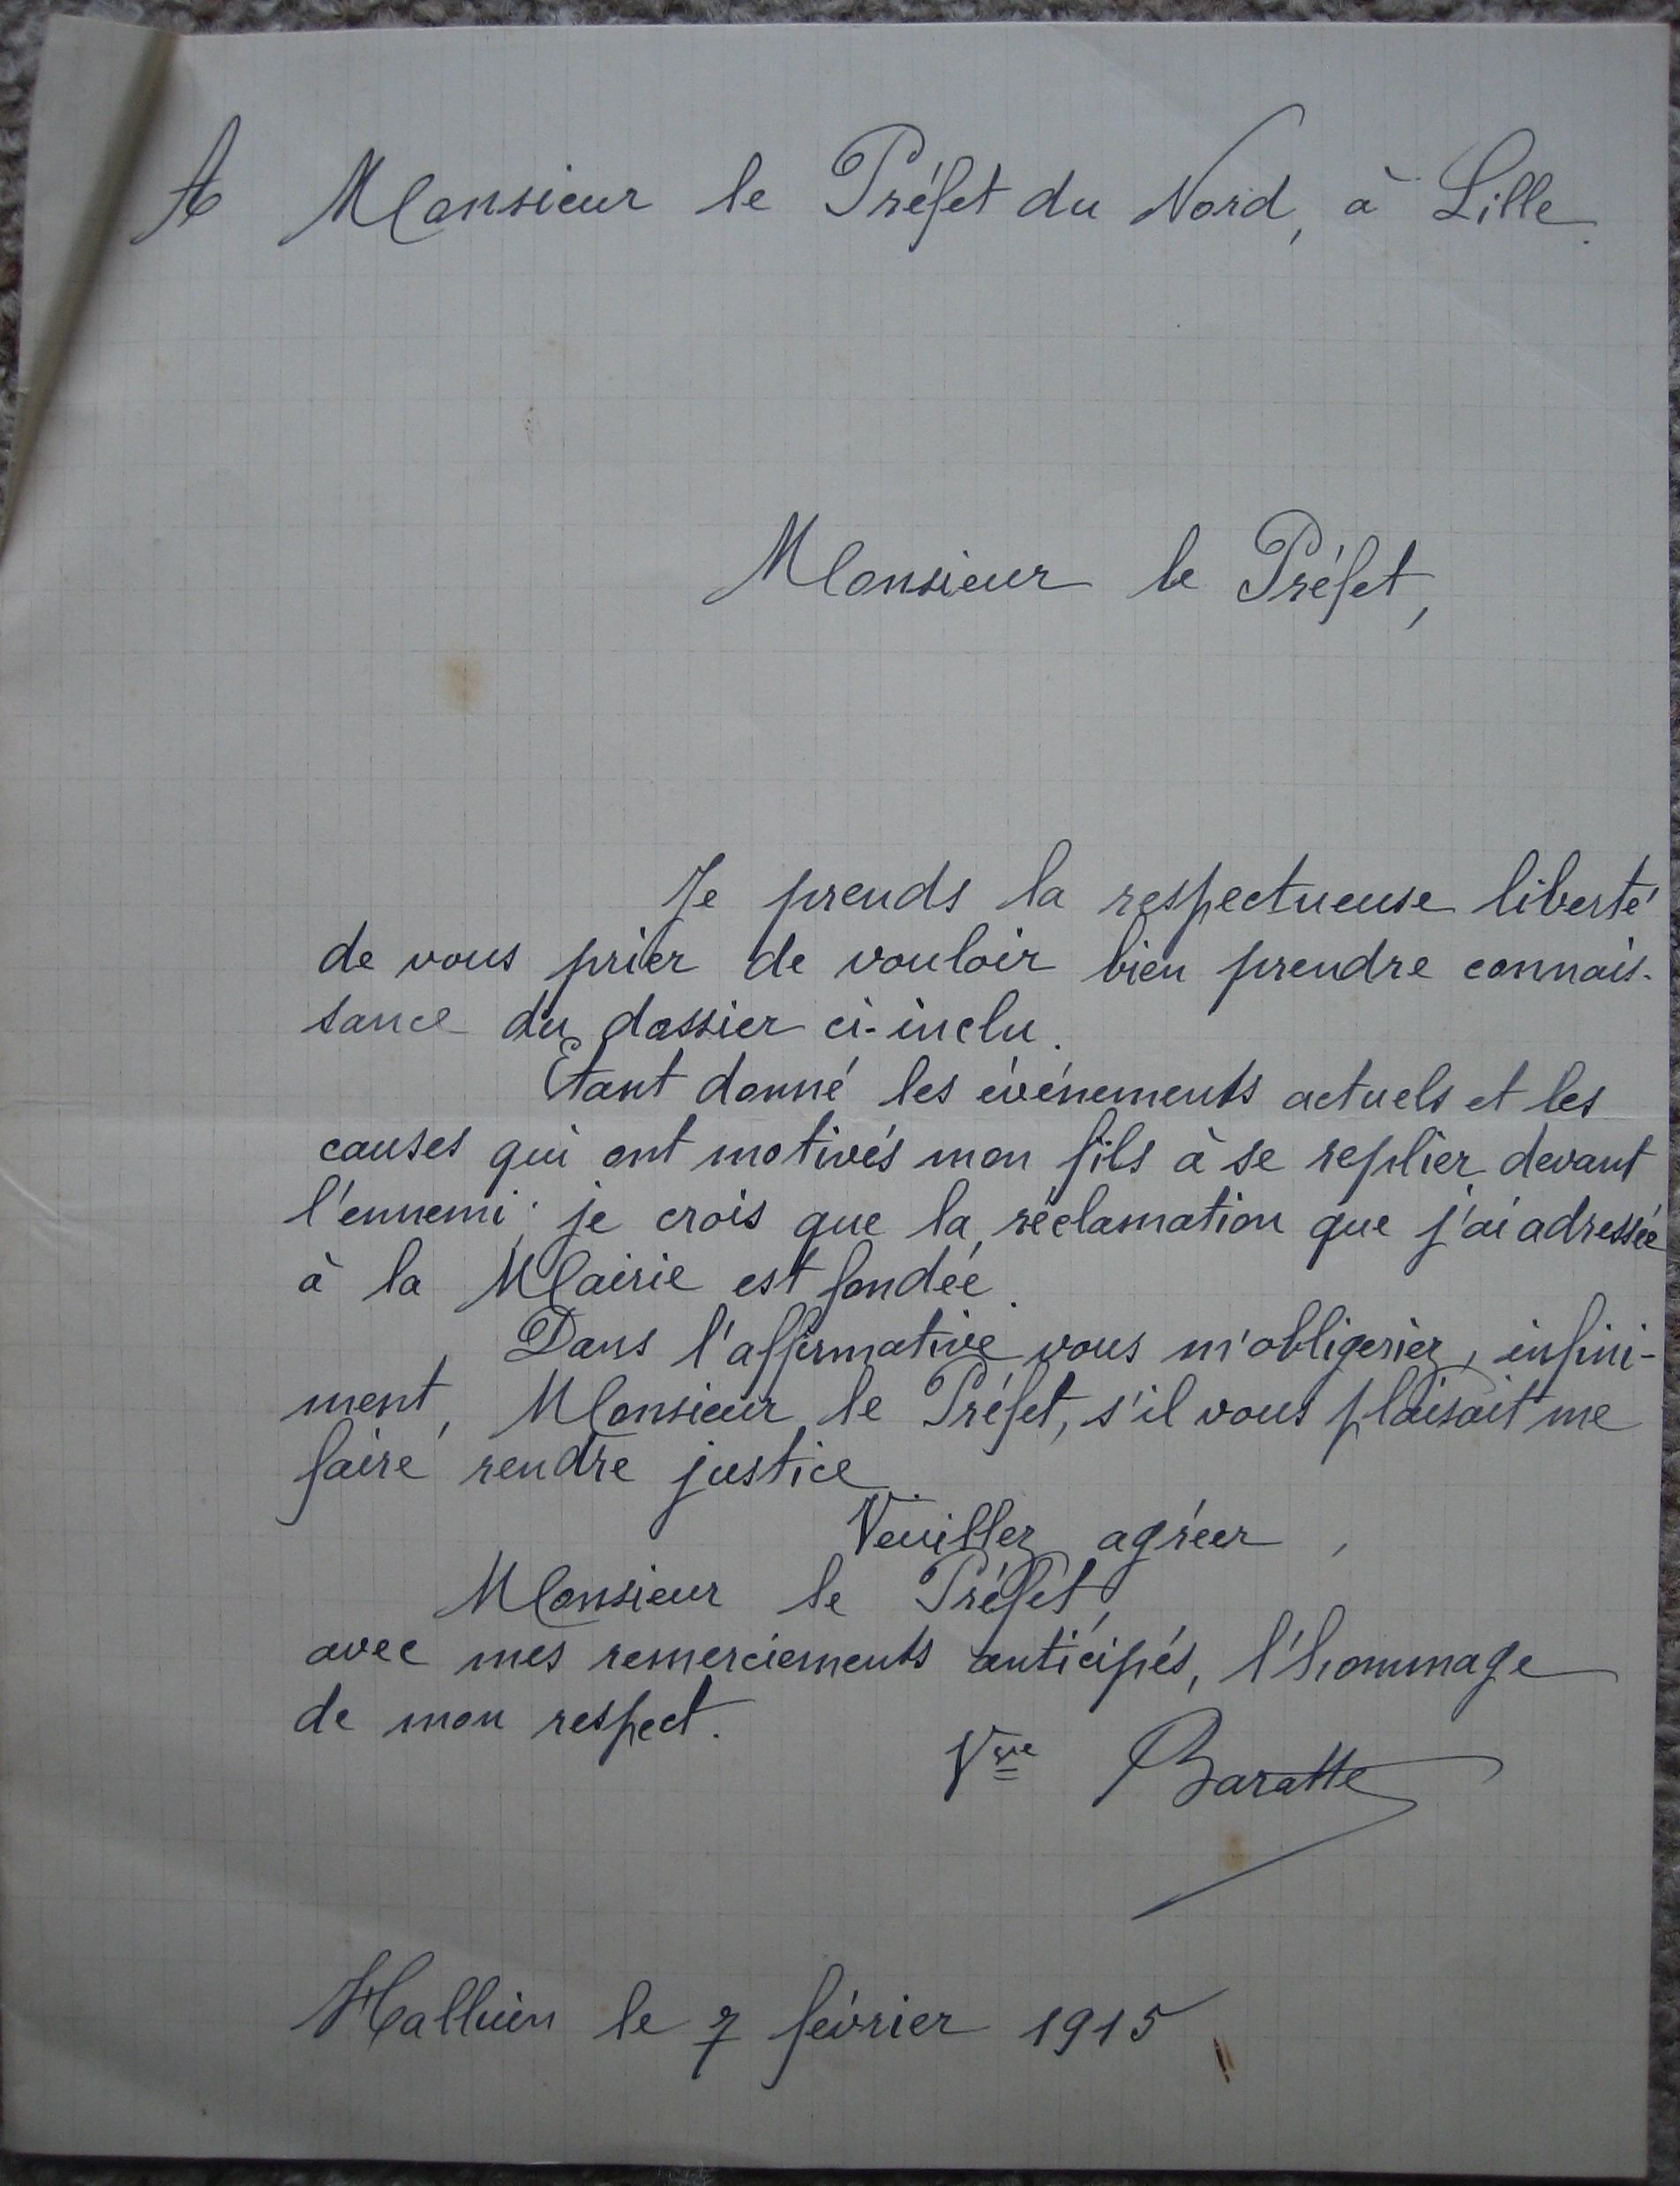 A Monsieur le Préfet du Nord, à Lille.
Monsieur le Préfet,
Je prends la respectueuse liberté
de vous prier de vouloir bien prendre connais-
sance du dossier ci-inclu.
Etant donné les événements actuels et les
causes qui ont motivés mon fils à se replier devant
l'ennemi; je crois que la réclamation que j'ai adressée
à la Mairie est fondée.
Dans l'affirmative vous m'obligeriez, infini-
ment, Monsieur le Préfet, s'il vous plaisait me
faire rendre justice.
Veuillez agréer,
Monsieur le Préfet,
avec mes remerciements anticipés, l'hommage
de mon respect.
Vve Baratte
Halluin le 7 février 1915